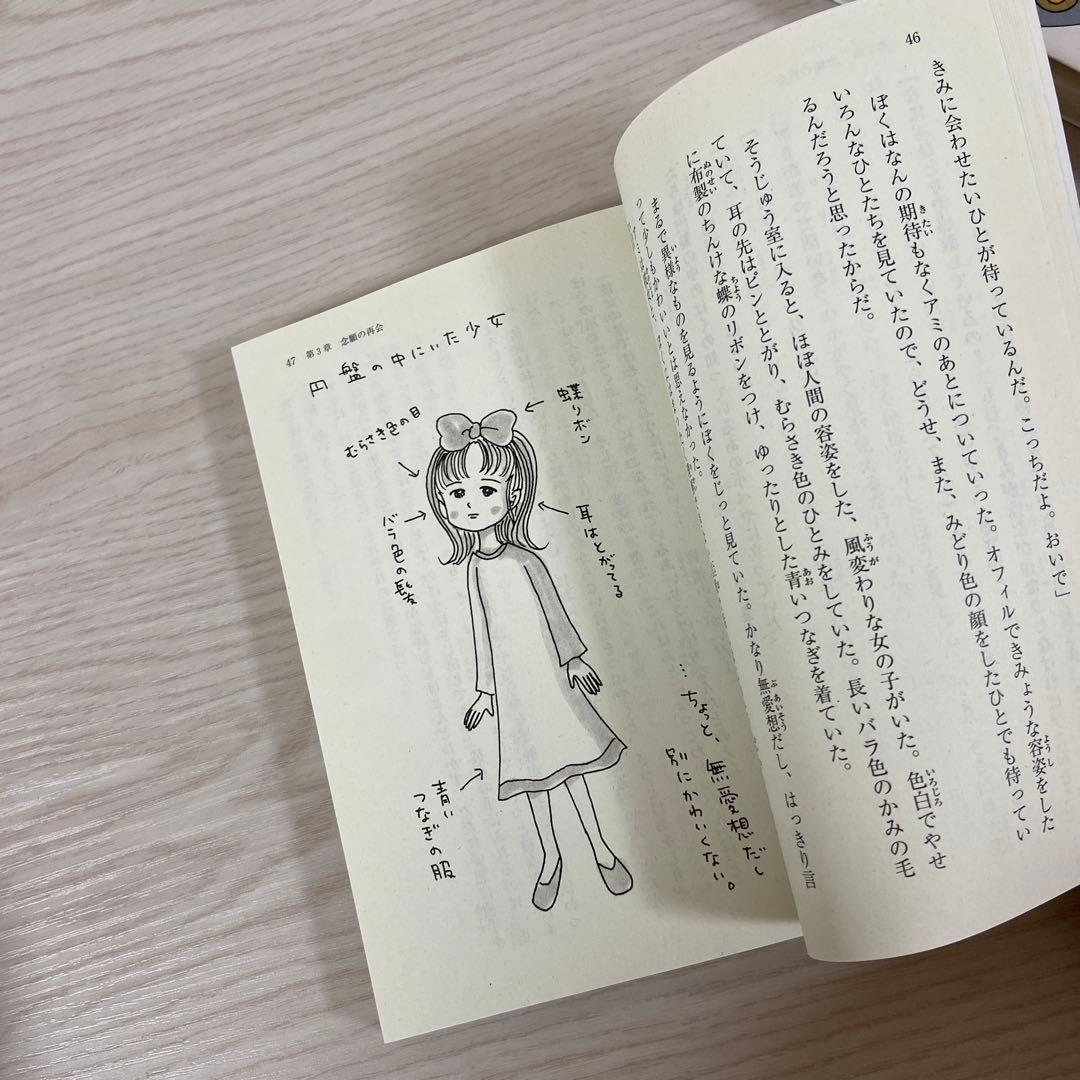 46
きみに会わせたいひとが待っているんだ。こっちだよ。おいで」
ぼくはなんの期待もなくアミのあとについていった。オフィルできみょうな容姿をした
いろんなひとたちを見ていたので、どうせ、また、みどり色の顔をしたひとでも待ってい
るんだろうと思ったからだ。
そうじゅう室に入ると、ほぼ人間の容姿をした、風変わりな女の子がいた。色白でやせ
ていて、耳の先はピンととがり、むらさき色のひとみをしていた。長いバラ色のかみの毛
に布製のちんけな蝶のリボンをつけ、ゆったりとした青いつなぎを着ていた。
まるで異様なものを見るようにぼくをじっと見ていた。かなり無愛想だし、はっきり言
って少しもかわいいとは思えなかった。
47 第3章 念願の再会
円盤の中にいた少女
蝶リボン
むらさき色の目
耳はとがってる
バラ色の髪
…ちょっと、無愛想だし
別にかわいくない。
青い
つなぎの服